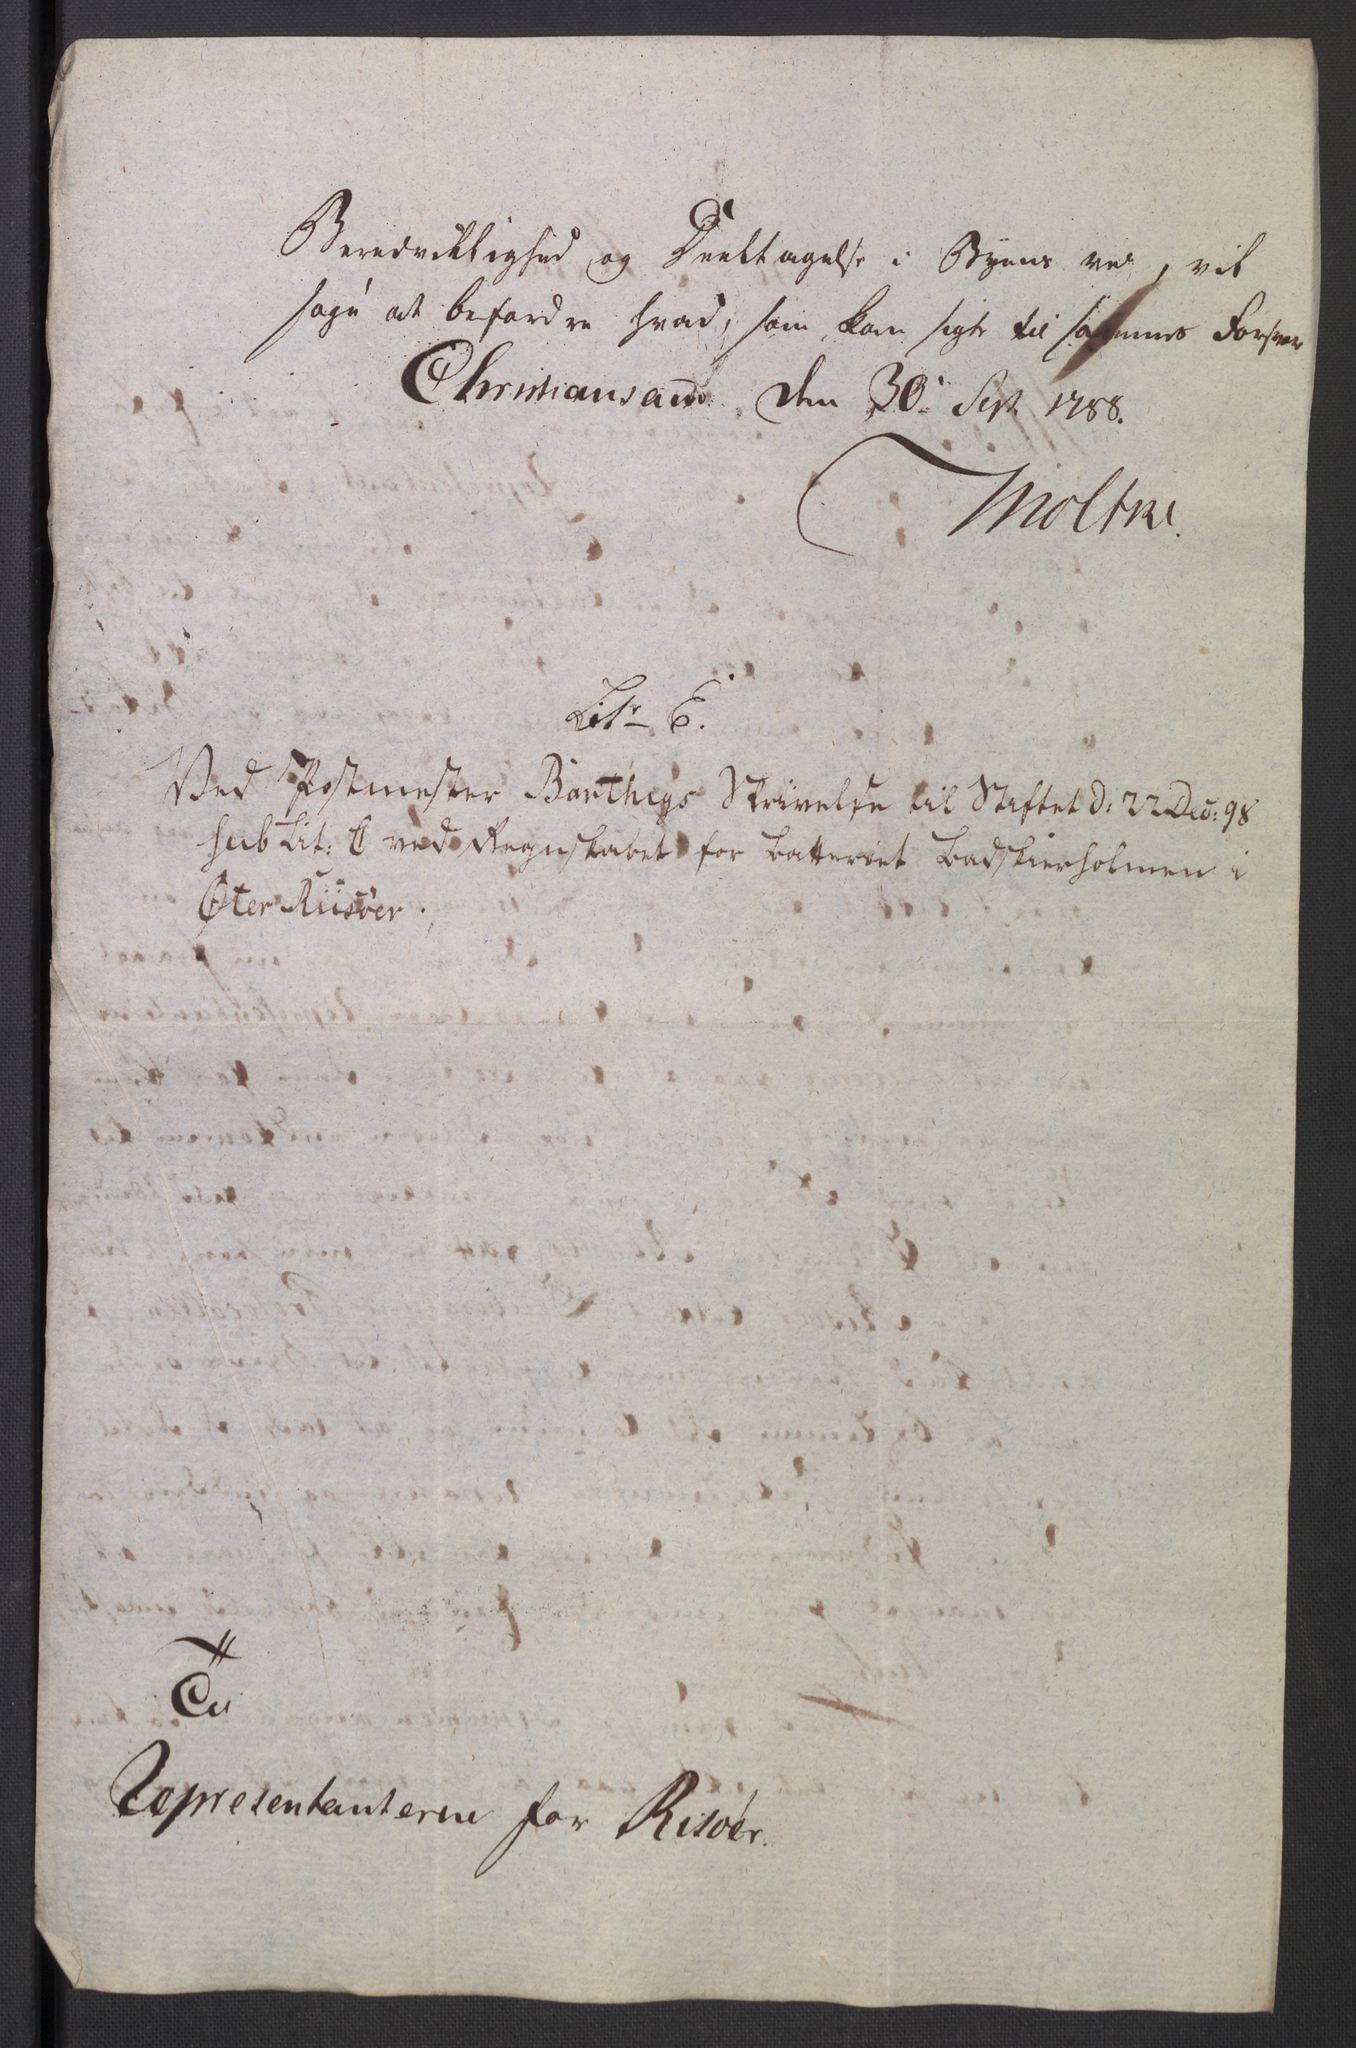 Beredvillighed og Deeltagelse i Byens vel, vil
søge at befordre hvad, som kan sigte til sammes Forsvar
Christiansand den 30 Sept 1788.
Moltke.
Litr E.
Ved Postmester Barthigs Skrivelse til Stiftet d: 22 Dec: 98
sub Lit: C ved Regnskabet for Batteriet Badskierholmen i
Øster Riisøer.
Til
Repræsentanterne for Risøer.